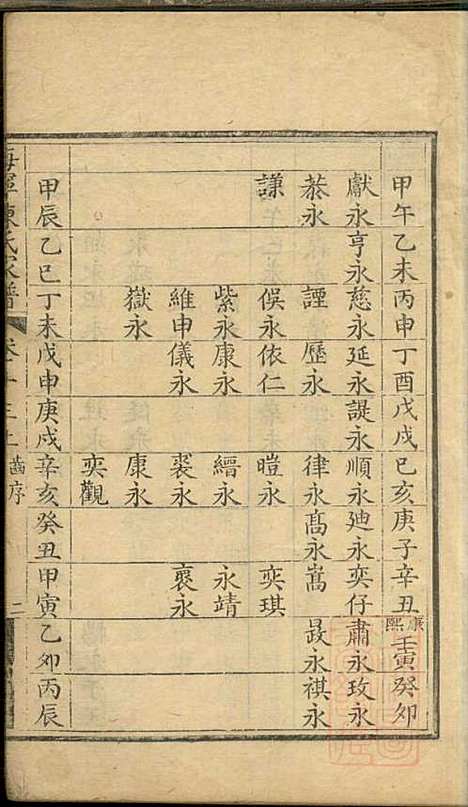 甲午乙未丙申丁酉戊戌己亥庚子辛丑康熙壬寅癸卯
獻永亨永慈永延永諟永順永廸永奕仔肅永玫永
菾永諲歷永律永高永嵩永祺永
謙俁永依仁暟永奕琪
紫永康永縉永永靖
維申儀永裘永襃永
嶽永康永
奕觀
甲辰乙巳丁未戊申庚戌辛亥癸丑甲寅乙卯丙辰
海寧陳氏家譜 齒序 二